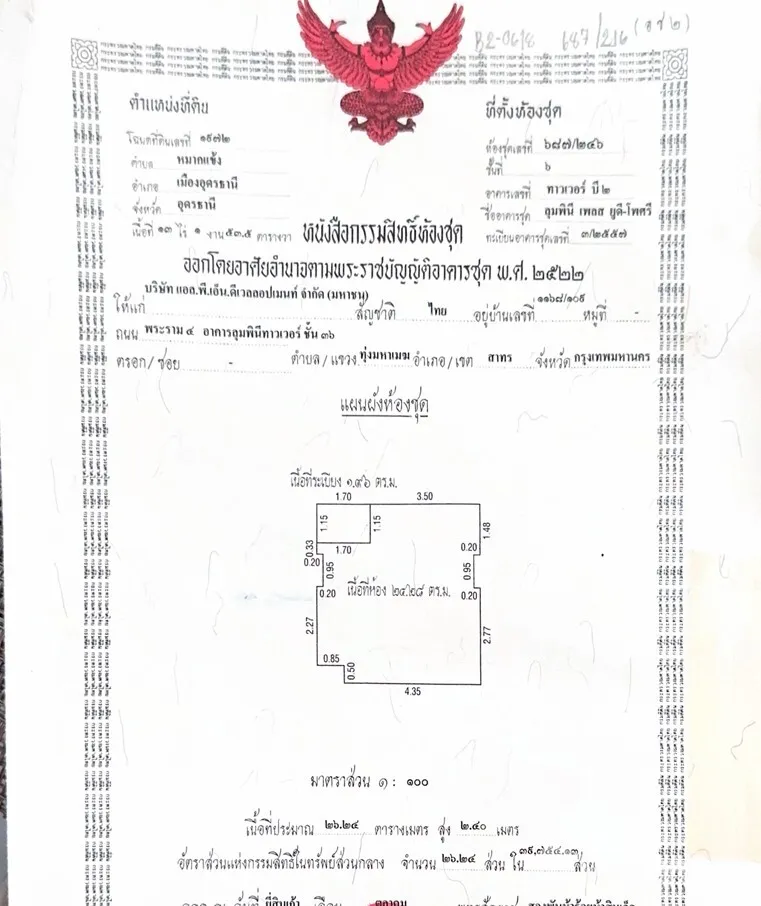 B2-06/8 687/216 (อช ๒)
ตำแหน่งที่ดิน
ที่ตั้งห้องชุด
โฉนดที่ดินเลขที่ ๑๙๗๒
ห้องชุดเลขที่ ๖๘๗/๒๔๖
ตำบล หมากแข้ง
ชั้นที่ ๖
อำเภอ เมืองอุดรธานี
อาคารเลขที่ ทาวเวอร์ บี ๒
จังหวัด อุดรธานี
ชื่ออาคารชุด ลุมพินี เพลส ยูดี-โพศรี
เนื้อที่ ๑๓ ไร่ ๑ งาน ๕๓.๕ ตารางวา
ทะเบียนอาคารชุดเลขที่ ๓/๒๕๕๗
หนังสือกรรมสิทธิ์ห้องชุด
ออกโดยอาศัยอำนาจตามพระราชบัญญัติอาคารชุด พ.ศ. ๒๕๒๒
ให้แก่ บริษัท แอล.พี.เอ็น.ดีเวลลอปเมนท์ จำกัด (มหาชน) สัญชาติ ไทย อยู่บ้านเลขที่ ๑๑๖๘/๑๐๙ หมู่ที่ -
ถนน พระราม ๔ อาคารลุมพินีทาวเวอร์ ชั้น ๓๖
ตรอก/ซอย - ตำบล/แขวง ทุ่งมหาเมฆ อำเภอ/เขต สาทร จังหวัด กรุงเทพมหานคร
แผนผังห้องชุด
เนื้อที่ระเบียง ๑.๙๖ ตร.ม.
1.70 3.50
1.15 1.15 1.48
0.33 1.70 0.20
0.20 0.95 0.95
เนื้อที่ห้อง ๒๔.๒๘ ตร.ม.
0.20 0.20
2.27 2.77
0.85 0.50
4.35
มาตราส่วน ๑ : ๑๐๐
เนื้อที่ประมาณ ๒๖.๒๔ ตารางเมตร สูง ๒.๔๐ เมตร
อัตราส่วนแห่งกรรมสิทธิ์ในทรัพย์ส่วนกลาง จำนวน ๒๖.๒๔ ส่วน ใน ๓๙,๗๕๔.๑๓ ส่วน